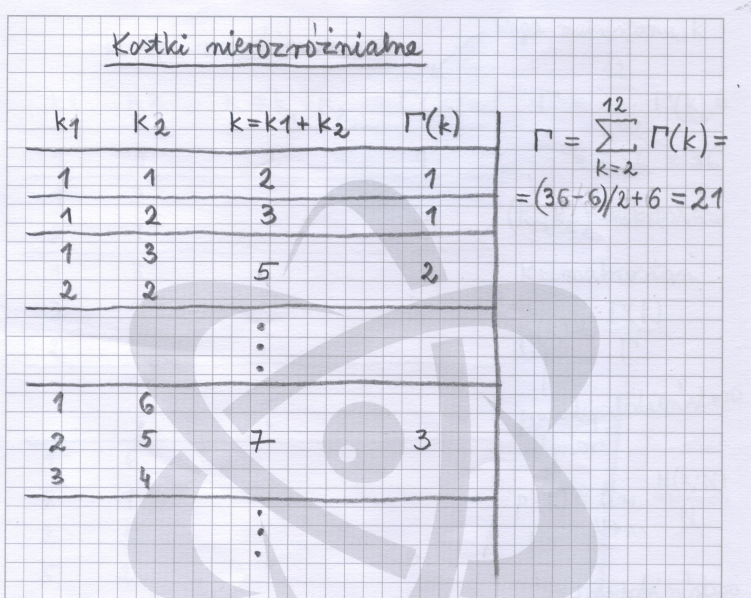 Kostki nierozróżnialne
k1 k2 k=k1+k2 Γ(k)
1 1 2 1
1 2 3 1
1 3
5 2
2 2
⋮
1 6
2 5 7 3
3 4
⋮
12
Γ = ∑ Γ(k) =
k=2
= (36-6)/2+6 = 21